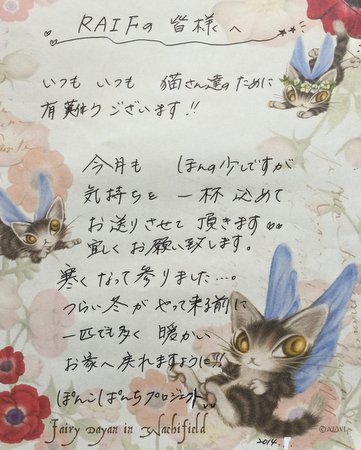 RAIFの 皆様へ
いつも いつも 猫さん達のために
有難うございます!!
今月も ほんの少しですが
気持ちを 一杯 込めて
お送りさせて 頂きます
宜しくお願い致します。
寒くなって参りました…。
つらい冬が やって来る前に
一匹でも多く 暖かい
お家へ戻れますように!!
ぽんこぽんちプロジェクト
Fairy Dayan in Wachifield
2014